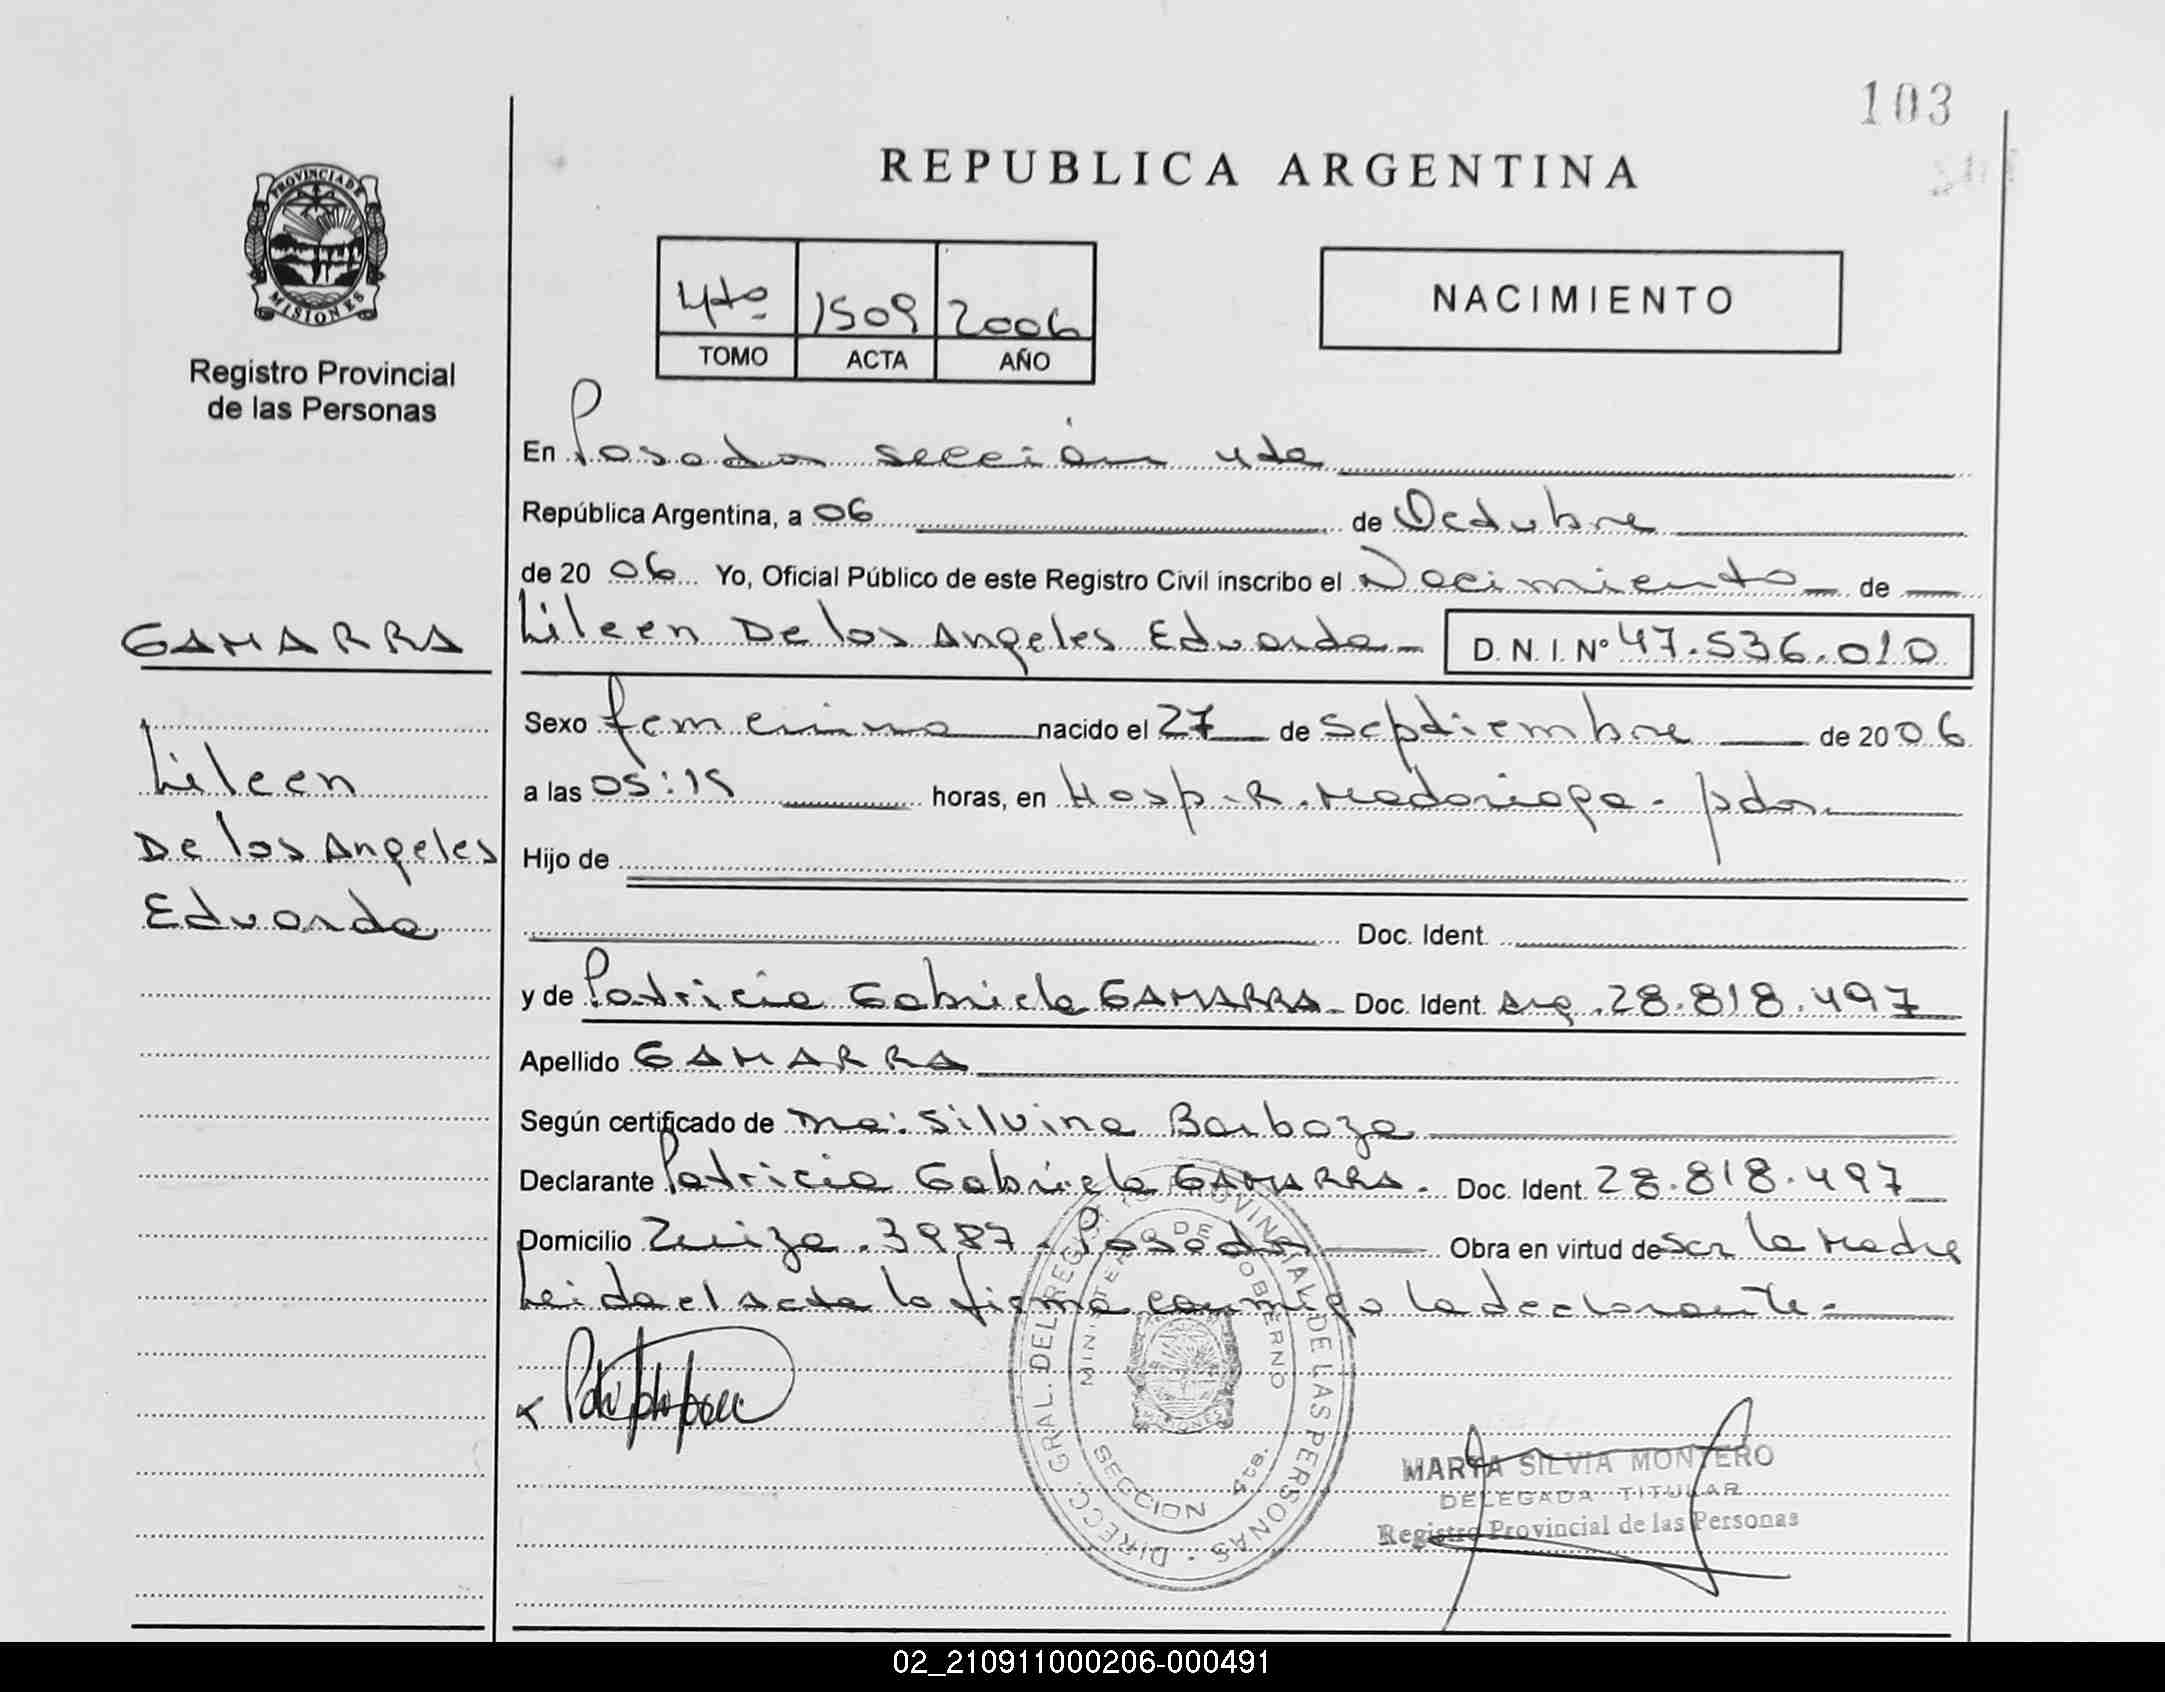 103
REPUBLICA ARGENTINA
PROVINCIA DE
MISIONES
Registro Provincial
de las Personas
4to 1509 2006
TOMO ACTA AÑO
NACIMIENTO
En Posadas sección 4ta
República Argentina, a 06 de Octubre
de 20 06 Yo, Oficial Público de este Registro Civil inscribo el Nacimiento de
GAMARRA
Lileen De los Angeles Eduarda D.N.I.Nº 47.536.010
Sexo femenino nacido el 27 de septiembre de 20 06
Lileen
De los Angeles
Eduarda
a las 05:15 horas, en Hosp. R. Madariaga. pdas
Hijo de
Doc. Ident.
y de Patricia Gabriela GAMARRA Doc. Ident. Arg. 28.818.497
Apellido GAMARRA
Según certificado de Ma: Silvina Barboza
Declarante Patricia Gabriela GAMARRA. Doc. Ident. 28.818.497
Domicilio 3987. Posadas Obra en virtud de ser la Madre
Leida el acta la firma conmigo la declarante
DIRECC. GRAL. DEL REGISTRO PROVINCIAL DE LAS PERSONAS
MINISTERIO DE GOBIERNO
SECCION 4ta.
MARTA SILVIA MONTERO
DELEGADA TITULAR
Registro Provincial de las Personas
02_210911000206-000491